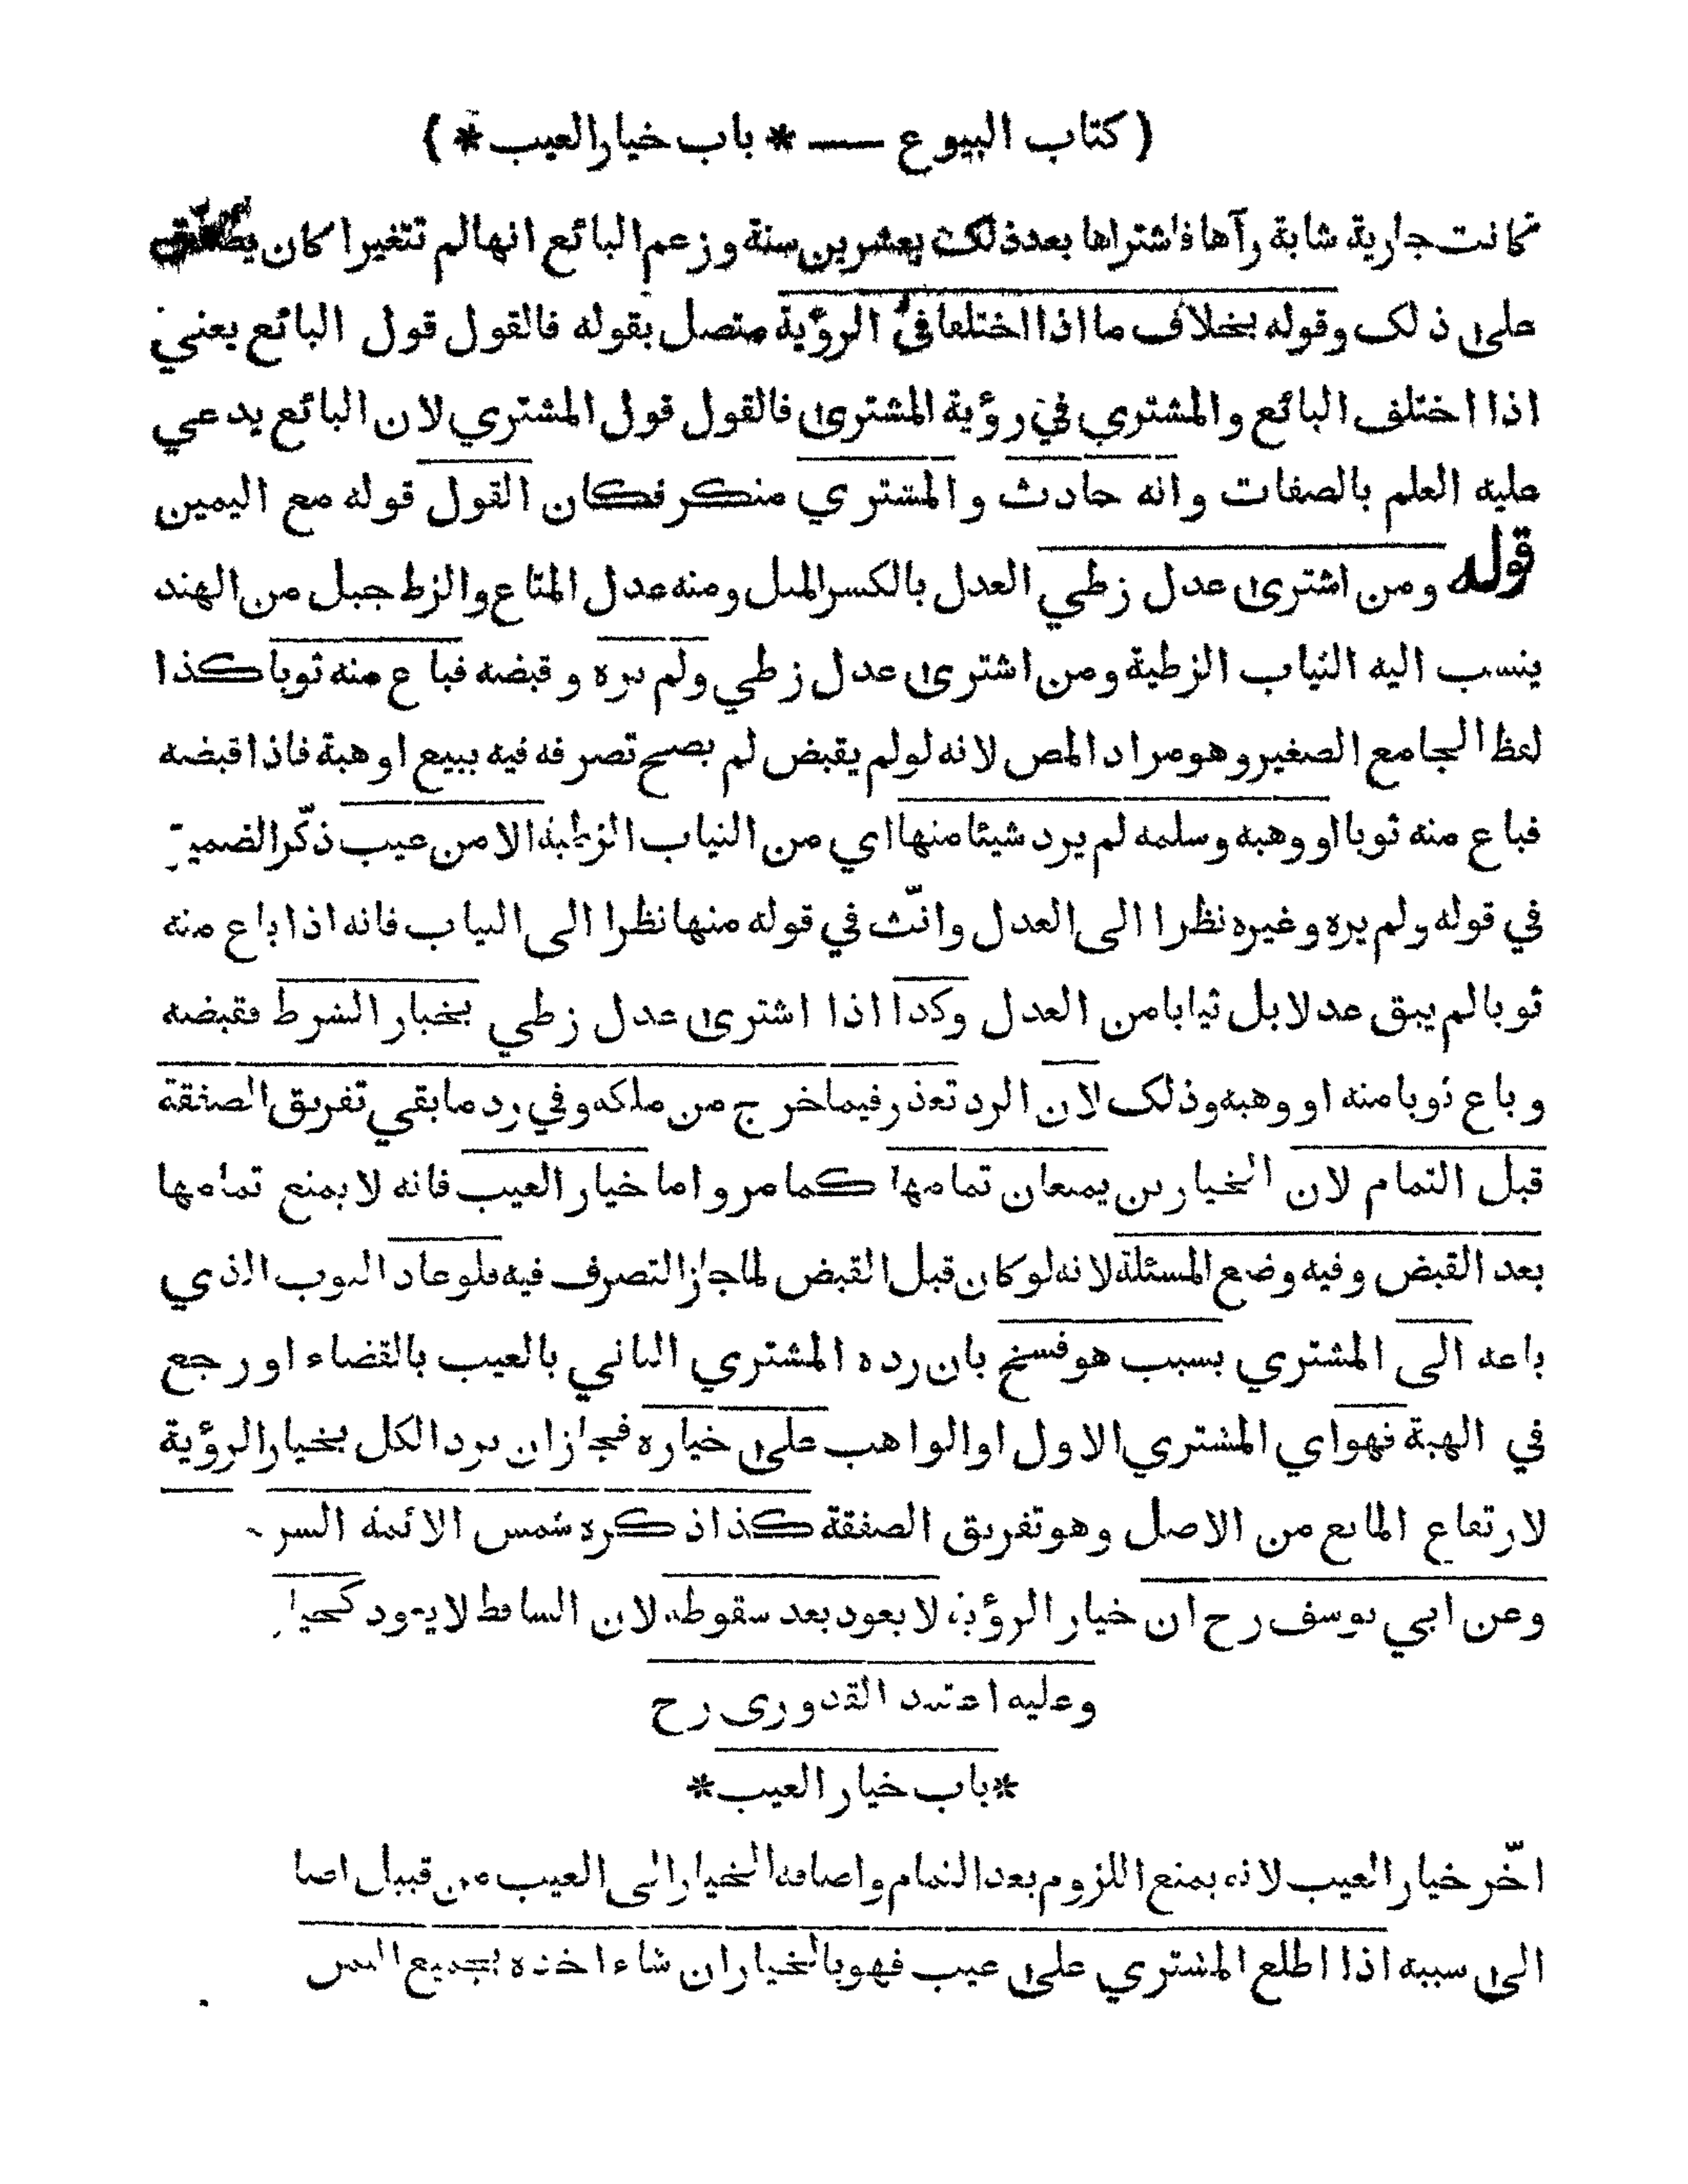 ( كتاب البيوع — * باب خيار العيب * )
كانت جارية شابة رآها فاشتراها بعد ذلك بعشرين سنة وزعم البائع انها لم تتغيرا كان
على ذلك وقوله بخلاف ما اذا اختلفا في الرؤية متصل بقوله فالقول قول البائع يعني
اذا اختلف البائع والمشتري في رؤية المشترى فالقول قول المشتري لان البائع يدعي
عليه العلم بالصفات وانه حادث والمشتري منكر فكان القول قوله مع اليمين
قوله ومن اشترى عدل زطي العدل بالكسر المثل ومنه عدل المتاع والزط جبل من الهند
ينسب اليه الثياب الزطية ومن اشترى عدل زطي ولم يره وقبضه فباع منه ثوبا كذا
لفظ الجامع الصغير وهو مراد المص لانه لو لم يقبض لم يصح تصرفه فيه ببيع او هبة فاذا قبضه
فباع منه ثوبا او وهبه وسلمه لم يرد شيئا منها اي من الثياب الزطية الا من عيب ذكّر الضمير
في قوله ولم يره وغيره نظرا الى العدل وانّث في قوله منها نظرا الى الثياب فانه اذا باع منه
ثوبا لم يبق عدلا بل ثيابا من العدل وكذا اذا اشترى عدل زطي بخيار الشرط فقبضه
وباع ثوبا منه او وهبه وذلك لان الرد تعذر فيما خرج من ملكه وفي رد ما بقي تفريق الصفقة
قبل التمام لان الخيارين يمنعان تمامها كما مر واما خيار العيب فانه لا يمنع تمامها
بعد القبض وفيه وضع المسئلة لانه لو كان قبل القبض لما جاز التصرف فيه فلو عاد الثوب الذي
باعه الى المشتري بسبب هو فسخ بان رده المشتري الثاني بالعيب بالقضاء او رجع
في الهبة فهو اي المشتري الاول او الواهب على خياره فجاز ان يرد الكل بخيار الرؤية
لارتفاع المانع من الاصل وهو تفريق الصفقة كذا ذكره شمس الائمة السر
وعن ابي يوسف رح ان خيار الرؤية لا يعود بعد سقوطه لان الساقط لا يعود كخيار
وعليه اعتمد القدورى رح
*باب خيار العيب*
اخّر خيار العيب لانه يمنع اللزوم بعد التمام واضافة الخيار الى العيب من قبيل اضا
الى سببه اذا اطلع المشتري على عيب فهو بالخيار ان شاء اخذه بجميع الثمن